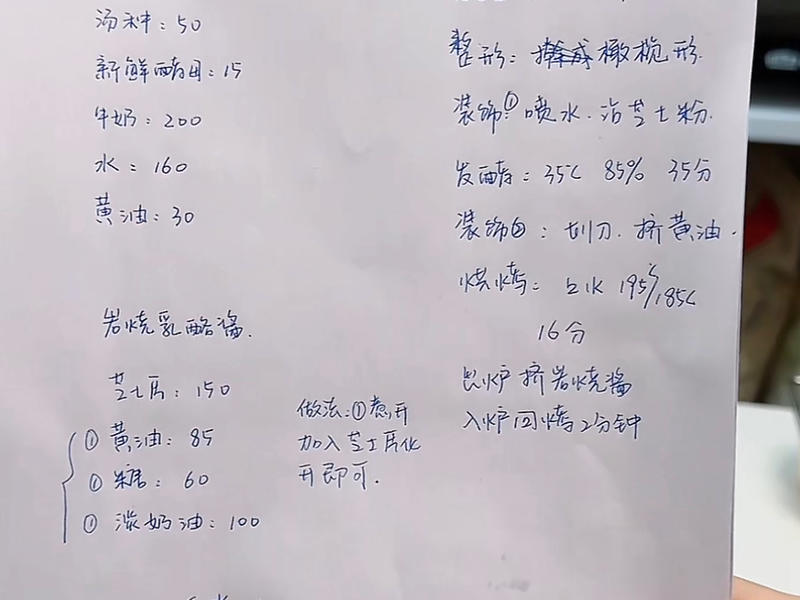 汤种：50
新鲜酵母：15
牛奶：200
水：160
黄油：30
岩烧乳酪酱.
芝士片：150
① 黄油：85
① 糖：60
① 淡奶油：100
做法：①煮开
加入芝士片化
开即可.
整形：橄榄形.
装饰①：喷水.沾芝士粉.
发酵：35℃ 85% 35分
装饰②：划刀.挤黄油.
烘烤：上火 195℃/185℃
16分
出炉挤岩烧酱
入炉回烤2分钟